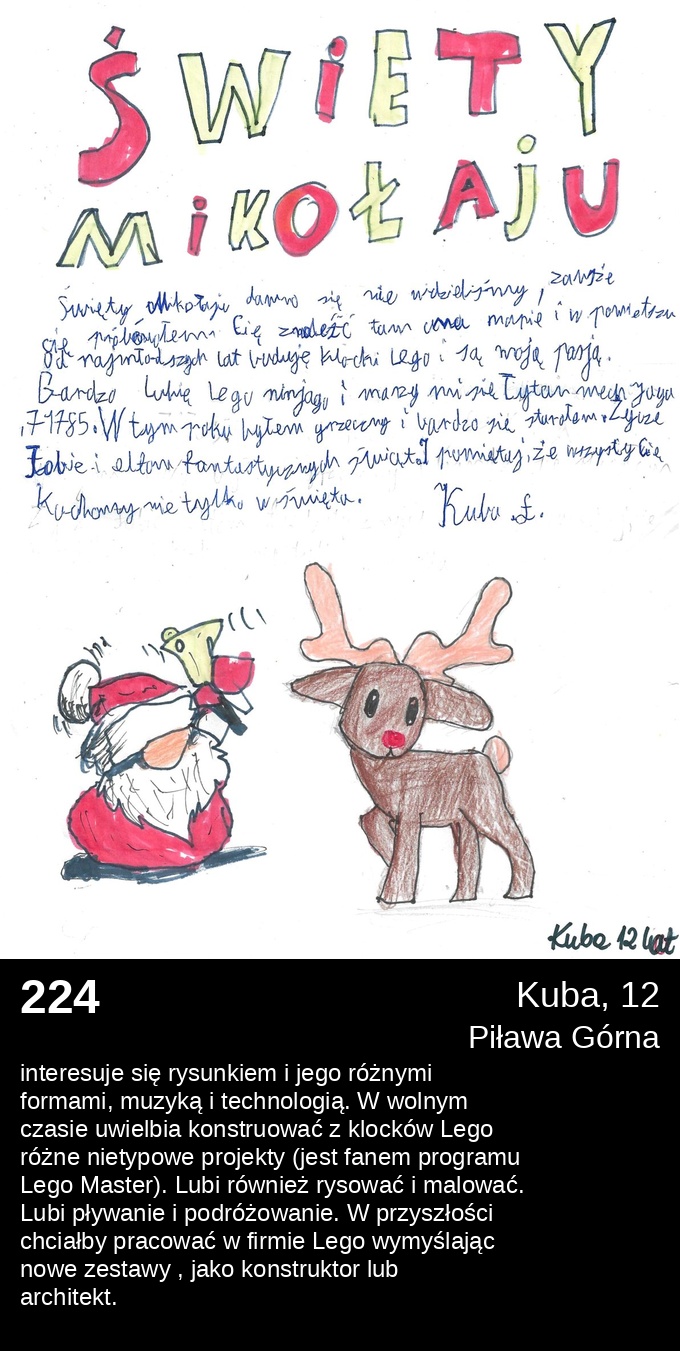 ŚWIĘTY
MIKOŁAJU
Święty Mikołaju dawno się nie widzieliśmy, zawsze
się próbowałem Cię znaleźć tam na mapie i w powietrzu
Od najmłodszych lat buduję klocki Lego i są moją pasją.
Bardzo lubię Lego ninjago i marzy mi się Tytan mech Jaya
,71785. W tym roku byłem grzeczny i bardzo się starałem. Życzę
Tobie i elfom fantastycznych świąt. I pamiętaj, że wszyscy Cię
Kochamy nie tylko w święta. Kuba Ł.
Kuba 12 lat
224
Kuba, 12
Piława Górna
interesuje się rysunkiem i jego różnymi
formami, muzyką i technologią. W wolnym
czasie uwielbia konstruować z klocków Lego
różne nietypowe projekty (jest fanem programu
Lego Master). Lubi również rysować i malować.
Lubi pływanie i podróżowanie. W przyszłości
chciałby pracować w firmie Lego wymyślając
nowe zestawy , jako konstruktor lub
architekt.